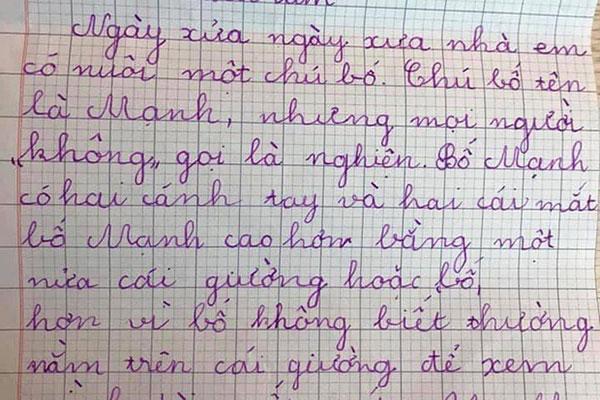 Ngày xửa ngày xưa nhà em
có nuôi một chú bố. Chú bố tên
là Mạnh, nhưng mọi người
„không„ gọi là nghiện. Bố Mạnh
có hai cánh tay và hai cái mắt
bố Mạnh cao hơn bằng một
nửa cái giường hoặc bố,
hơn vì bố không biết thường
nằm trên cái giường để xem